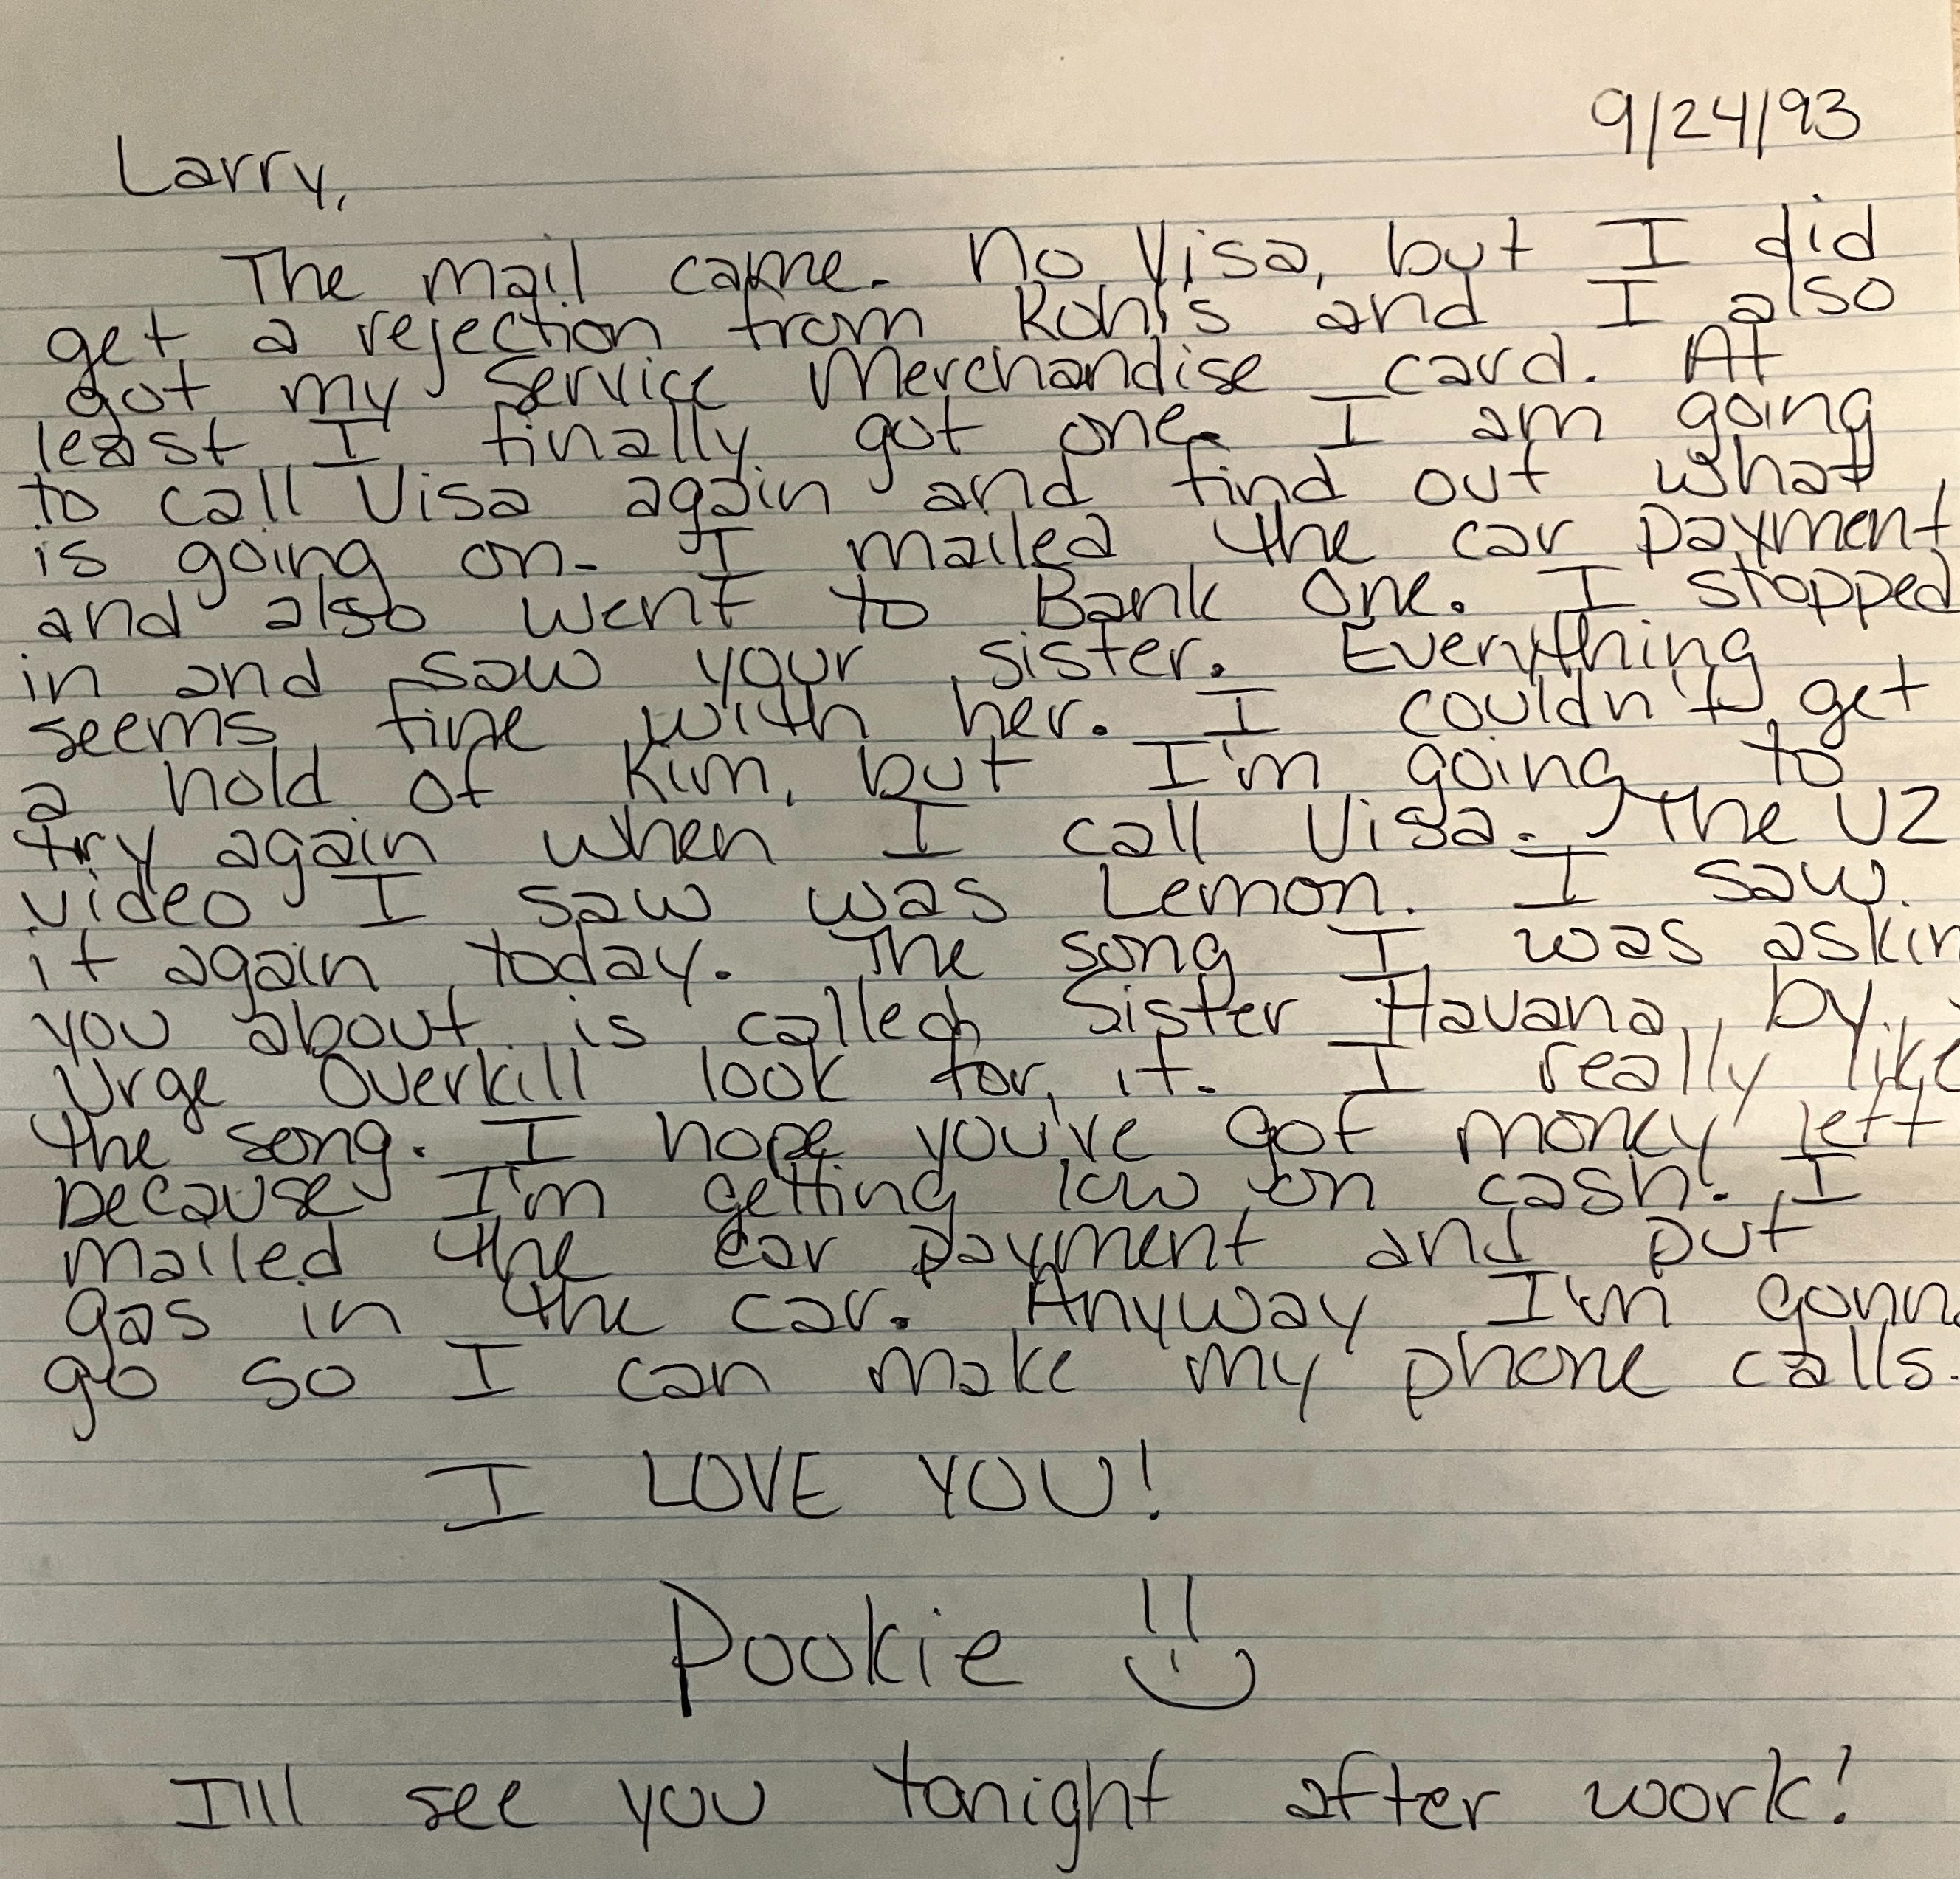 9/24/93
Larry,
The mail came. No Visa, but I did
get a rejection from Kohl's and I also
got my Service Merchandise card. At
least I finally got one. I am going
to call Visa again and find out what
is going on. I mailed the car payment
and also went to Bank One. I stopped
in and saw your sister. Everything
seems fine with her. I couldn't get
a hold of Kim, but I'm going to
try again when I call Visa. The U2
video I saw was Lemon. I saw
it again today. The song I was askin
you about is called Sister Havana by
Urge Overkill look for it. I really like
the song. I hope you've got money left
because I'm getting low on cash. I
mailed the car payment and put
gas in the car. Anyway I'm gonna
go so I can make my phone calls.
I LOVE YOU!
Pookie
I'll see you tonight after work!